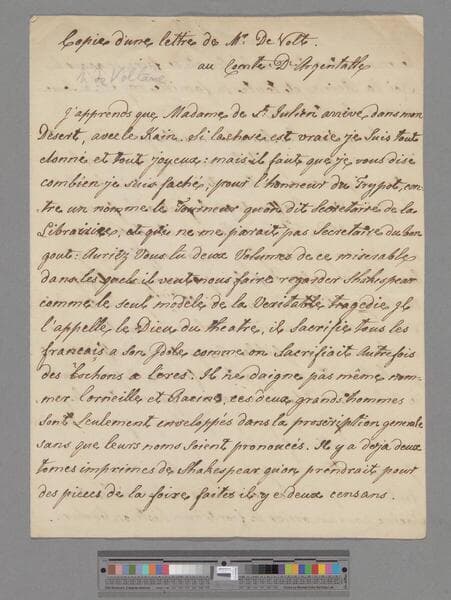 Copie d'une lettre de Mr. De Volt.
au Comte D'Argental
M. de Voltaire
J'apprends que Madame de St. Julien arrive dans mon
Desert, avec le Kain. Si la chose est vraie je suis tout
etonné et tout joyeux: mais il faut que je vous dise
combien je suis faché, pour l'honneur du Trypot, con-
tre un nommé le Tourneur qu'on dit Secretaire de la
Librairie, et qui ne me parait pas Secretaire du bon
gout: Auriez vous lu deux Volumes de ce miserable
dans les quels il veut nous faire regarder Shakespear
comme le seul modèle de la Veritable tragedie. Il
l'appelle le Dieu du theatre, il Sacrifie tous les
français a son Idole comme on Sacrifiait autrefois
des Cochons a Ceres. Il ne daigne pas même nom-
mer Corneille et Racine, ces deux grands hommes
sont Seulement enveloppés dans la proscription generale
sans que leurs noms soient prononcés. Il y a deja deux
tomes imprimés de Shakespear qu'on prendrait pour
des pieces de la foire faites il y e deux cens ans.